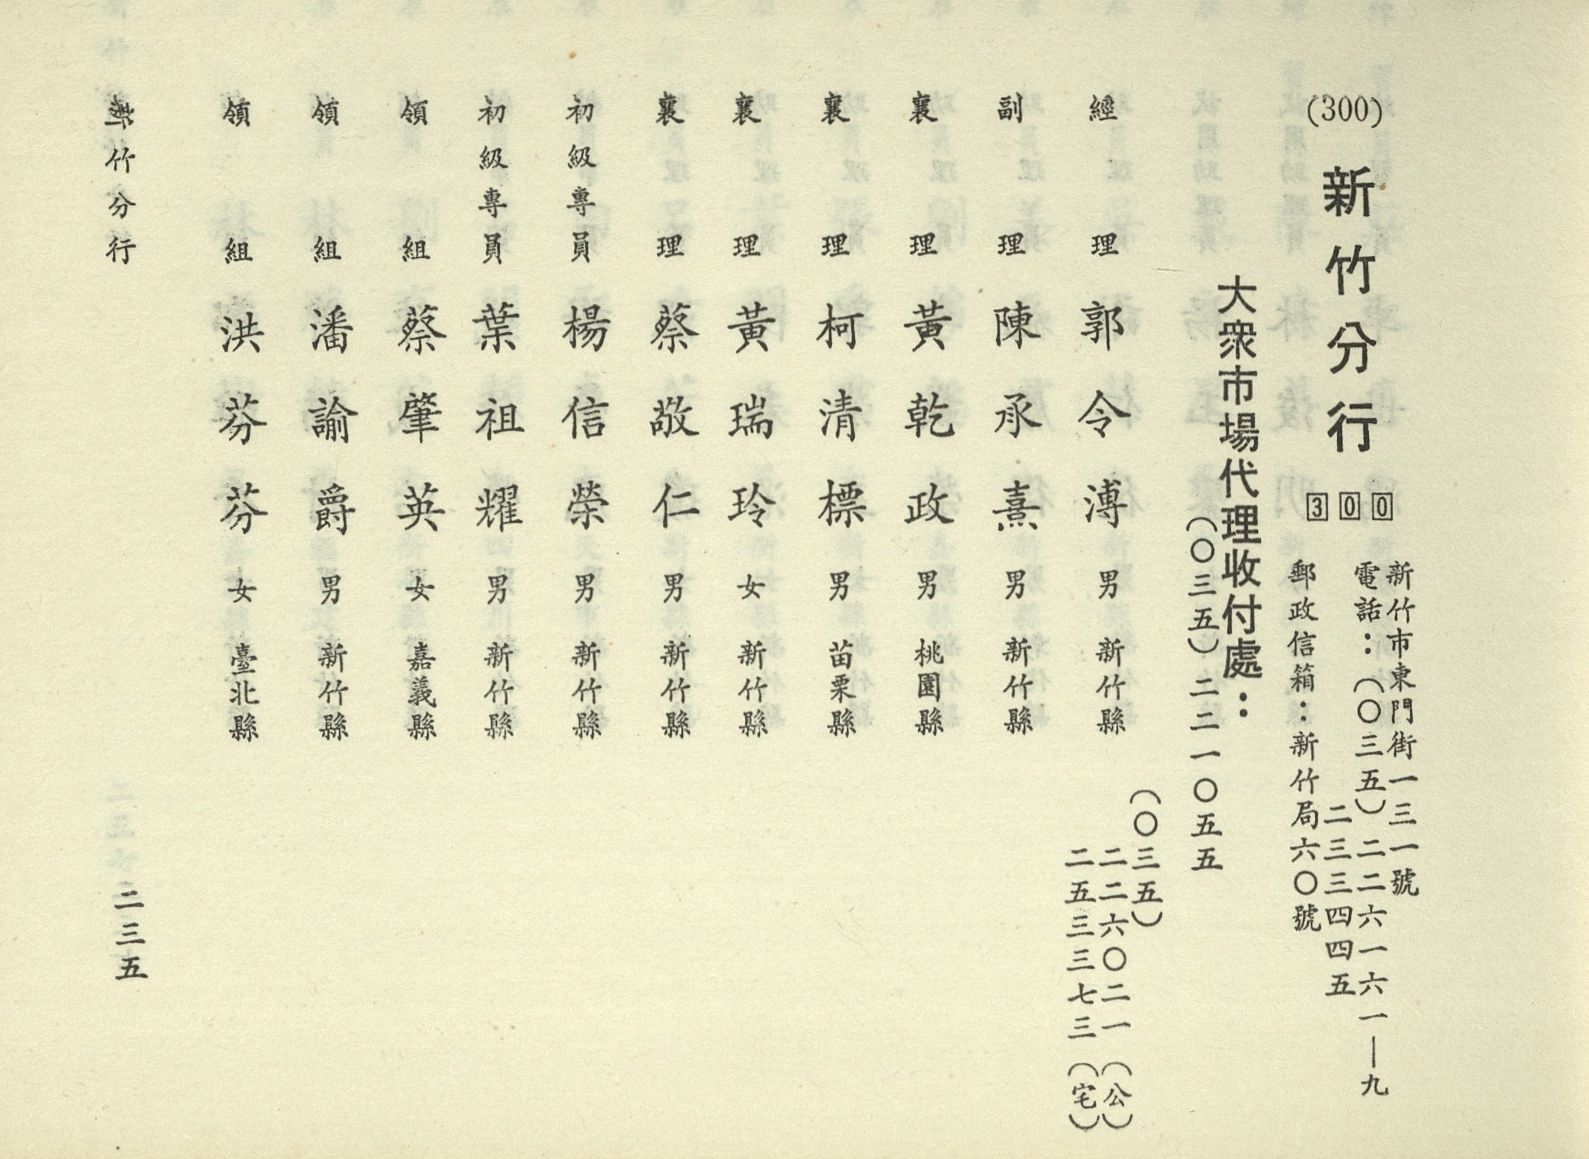 (300)
新竹分行
300
新竹市東門街一三一號
電話：(〇三五)二二六一六一—九
二三三四四五
郵政信箱：新竹局六〇號
大衆市場代理收付處：
(〇三五)二二一〇五五
(〇三五)
二二六〇二一(公)
二五三三七三(宅)
經理 郭令溥 男 新竹縣
副理 陳承熹 男 新竹縣
襄理 黃乾政 男 桃園縣
襄理 柯清標 男 苗栗縣
襄理 黃瑞玲 女 新竹縣
襄理 蔡敬仁 男 新竹縣
初級專員 楊信榮 男 新竹縣
初級專員 葉祖耀 男 新竹縣
領組 蔡肇英 女 嘉義縣
領組 潘諭爵 男 新竹縣
領組 洪芬芬 女 臺北縣
新竹分行
二三五